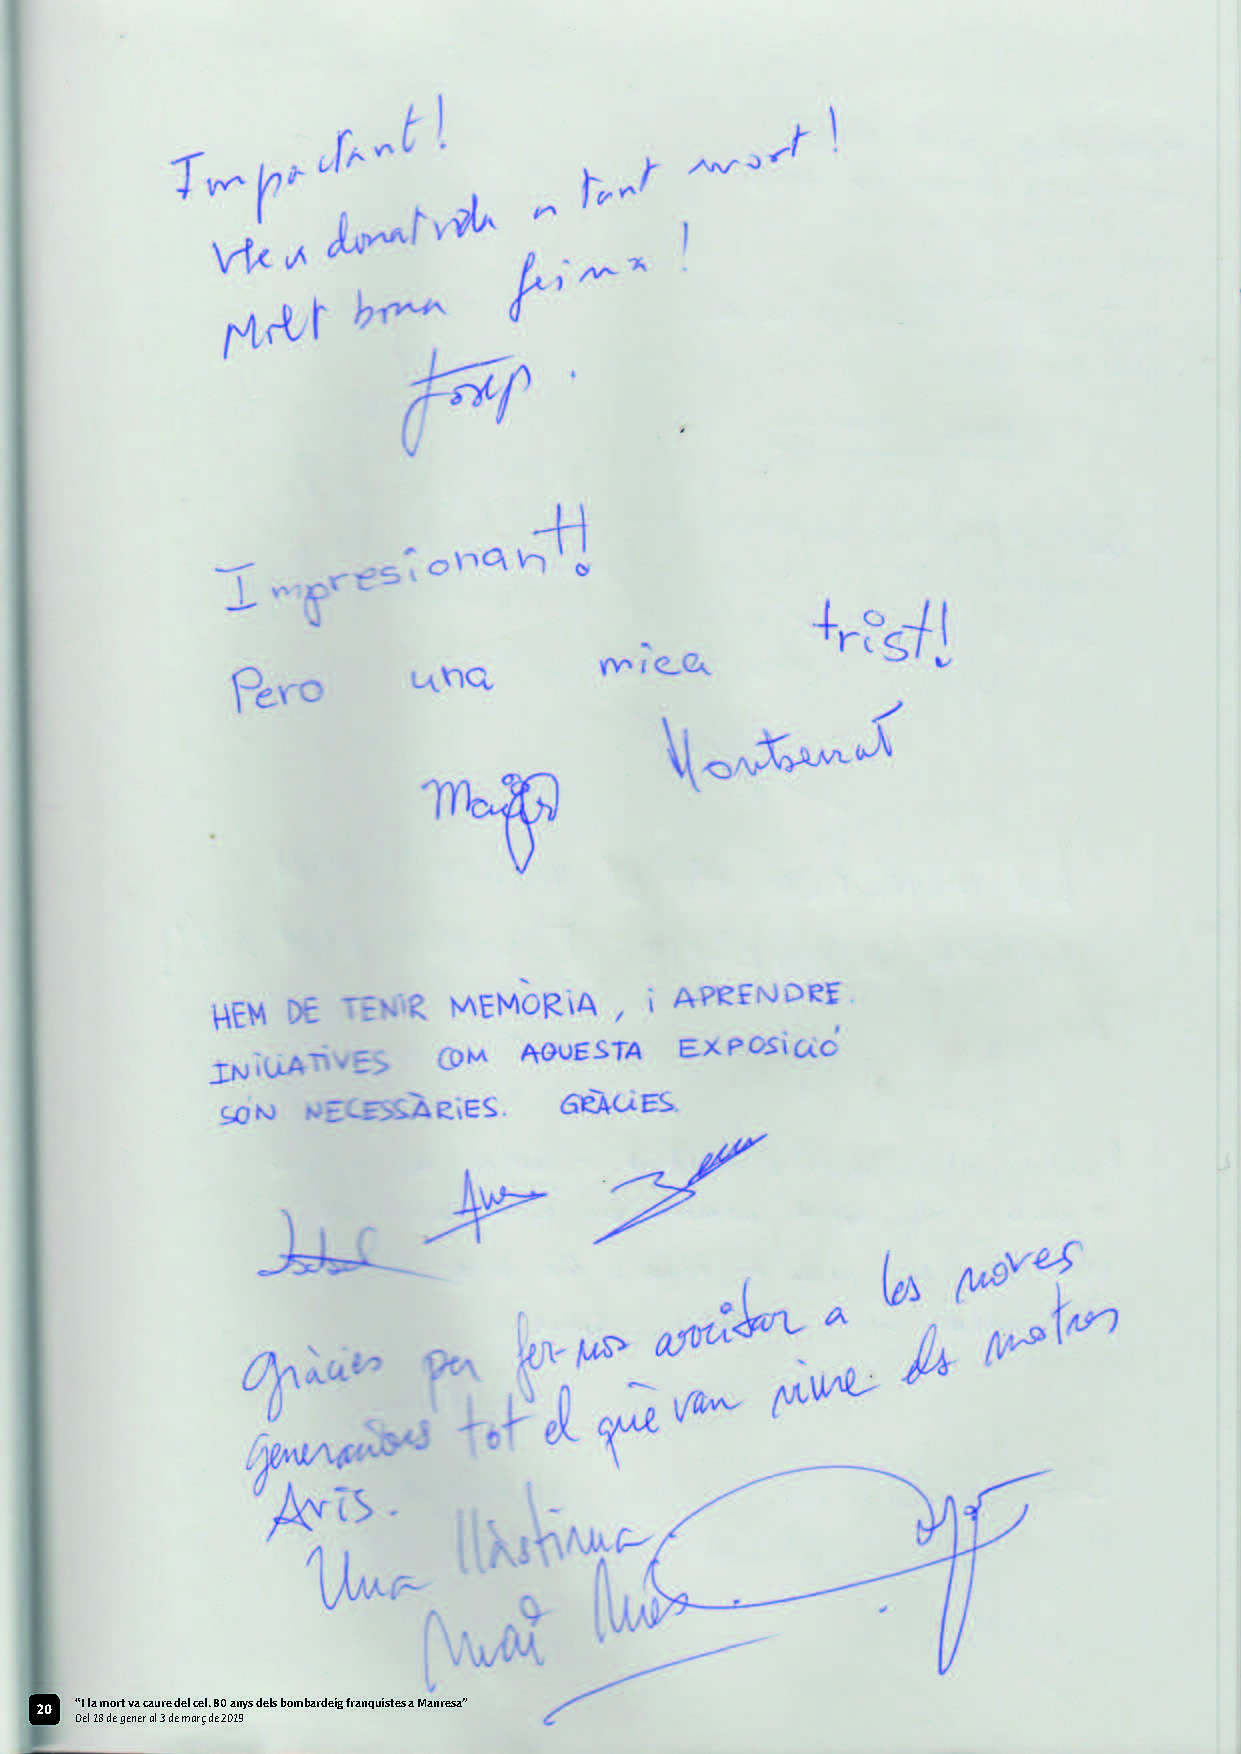 Impactant!
Heu donat vida a tant mort!
Molt bona feina!
Josep.
Impresionant!
Pero una mica trist!
Montserrat
HEM DE TENIR MEMÒRIA, i APRENDRE.
INICIATIVES COM AQUESTA EXPOSICIÓ
SÓN NECESSÀRIES. GRÀCIES.
Isabel Anna
Gràcies per fer-nos arribar a les noves
generacions tot el què van viure els nostres
Avis.
Una llàstima
Mai Més.
20
“I la mort va caure del cel. 80 anys dels bombardeig franquistes a Manresa”
Del 18 de gener al 3 de març de 2019